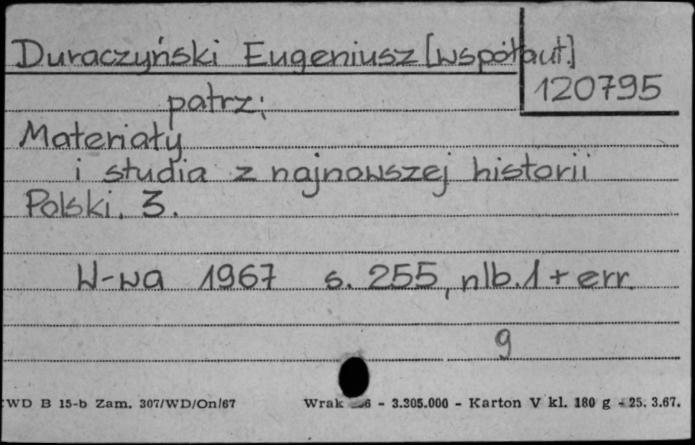 Duraczyński Eugeniusz [współaut.]
120795
patrz:
Materiały
i studia z najnowszej historii
Polski. 3.
W-wa 1967 s. 255, nlb. 1 + err.
9
WD B 15-b Zam. 307/WD/On/67 Wrak - 3.305.000 - Karton V kl. 180 g - 25. 3.67.